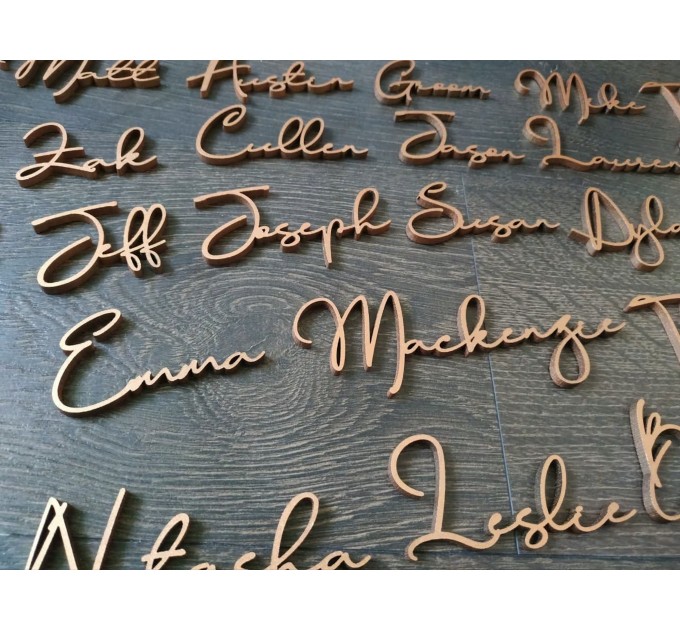 Matt Austin Green Mike
Zak Cullen Jason Lauren
Jeff Joseph Susan Dyla
Emma Mackenzie
Leslie
Natasha